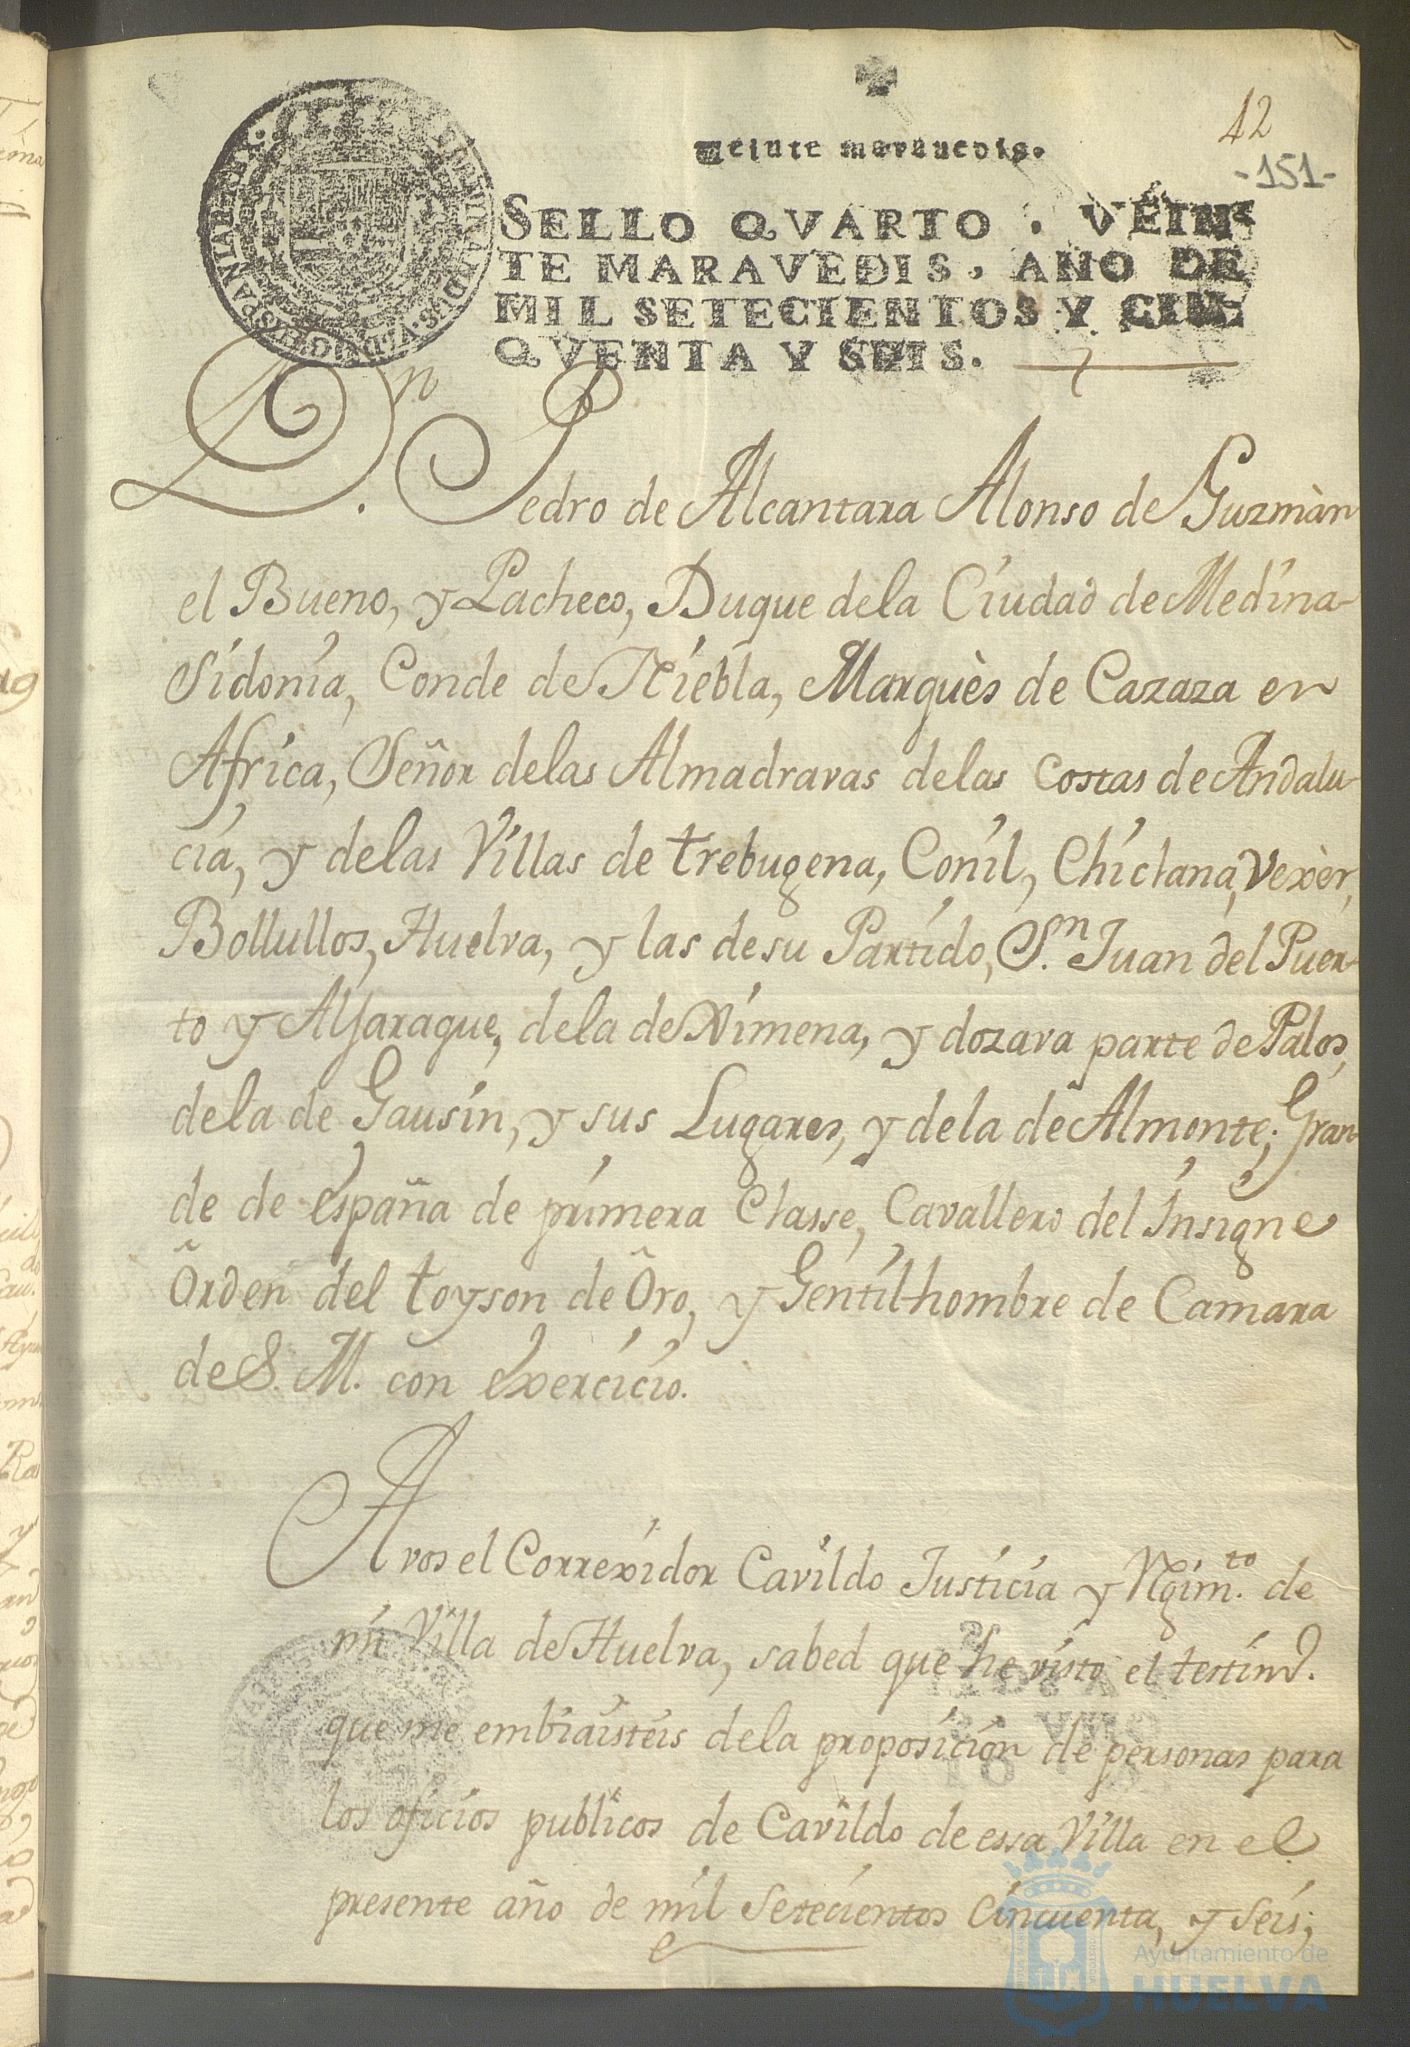 42
Veinte maravedis.
-151-
SELLO QVARTO, VEIN-
TE MARAVEDIS, AÑO DE
MIL SETECIENTOS Y CIN-
QVENTA Y SEIS.
HISPANIARVM REX
FERDINANDVS. VI. D. G.
Dn. Pedro de Alcantara Alonso de Guzmàn
el Bueno, y Pacheco, Duque dela Ciudad de Medina-
Sidonia, Conde de Niebla, Marquès de Cazaza en
Africa, Señor delas Almadravas delas costas de Andalu-
cia, y delas Villas de trebugena, Conil, Chiclana, Vexèr,
Bollullos, Huelva, y las desu Partido, Sn. Juan del Puer-
to y Aljaraque, dela de Ximena, y dozava parte de Palos,
dela de Gausin, y sus Lugares, y dela de Almonte; Gran-
de de españa de primera Classe, Cavallero del Insigne
Orden del toyson de Oro, y Gentil-hombre de Camara
de S. M. con exercicio.
A vos el Correxidor Cavildo Justicia y Rgimto. de
mi Villa de Huelva, sabed que he visto el testimo.
que me embiaisteis dela proposicion de personas para
los oficios publicos de Cavildo de essa Villa en el
presente año de mil setecientos cincuenta, y seis;
Ayuntamiento de
HUELVA